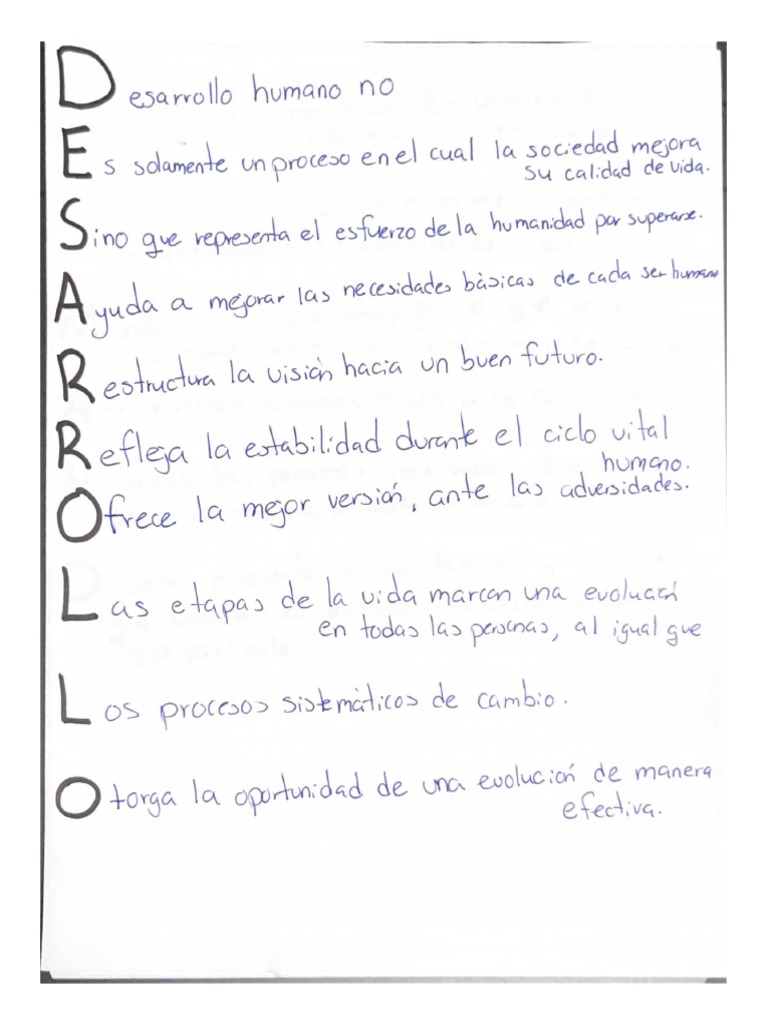 Desarrollo humano no
Es solamente un proceso en el cual la sociedad mejora
su calidad de vida.
Sino que representa el esfuerzo de la humanidad por superarse.
Ayuda a mejorar las necesidades básicas de cada ser humano
Restructura la visión hacia un buen futuro.
Refleja la estabilidad durante el ciclo vital
humano.
Ofrece la mejor versión, ante las adversidades.
Las etapas de la vida marcan una evolución
en todas las personas, al igual que
Los procesos sistemáticos de cambio.
Otorga la oportunidad de una evolución de manera
efectiva.